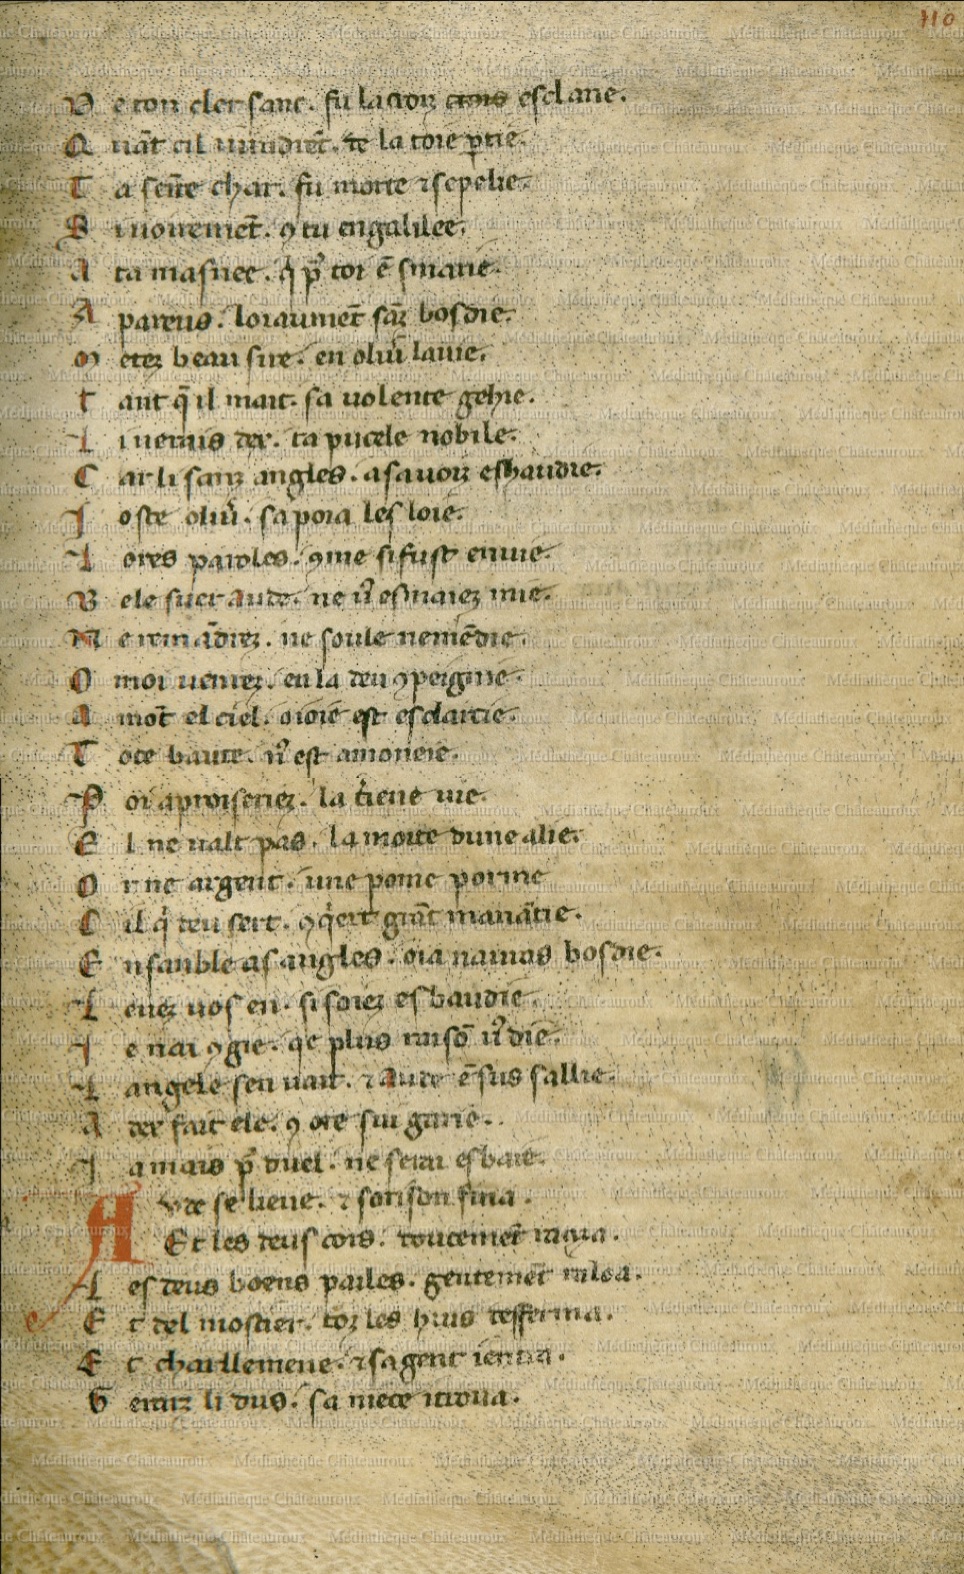 110
D e ton cler sanc. fu la croiz croiis esclarie.
Q uãt cil uindrẽt. de la toie ptie.
T a seīte char. fu morte ⁊ sepelie.
S i uoiremẽt. ꝯ tu en galilee.
A ta masnee. q̇ p̱ toi ẽ smarie.
A pareus. loiaumẽt sãz bosdie.
M etez beau sire. en oliũ la uie.
T ant q̃ il mait. sa uolente gehie.
L i uerais dex. ta pucele nobile.
C ar li sainz angles. a sauoiz esbaudie.
I oste oliũ. sapoia les loie.
L ores paroles. ꝯme si fust en uie.
B ele suer aude. ne u9 esmaiez mie.
N e remãdrez. ne soule ne mẽdie.
O moi uenrez. en la deu ꝯpeignie.
A mõt el ciel. o ioie est esclarcie.
T ote baute. u9 est amoneie.
P oi aproiseriez. la tiene uie.
E l ne ualt pas. la moite dune alie.
O r ne argent. une pome porrie
C il q̇ deu sert. ꝯq̇ert grãt manãtie.
E nsanble as angles. oia namas bosdie.
L euez uos en. si soiez esbaudie.
I e nai ꝯgie. qe plus raisõ u9 die.
L angele sen uait. ⁊ aude ẽ sus sallie.
A dex fait ele. ꝯ ore sui garie.
I amais p̱ duel. ne serai esbaie.
A ude se lieue. ⁊ sorison fina.
Et les deus cors. doucemẽt
L es deus boens pailes. gentemẽt
E t del mostier. toz les huis desferma.
E t charllemene. ⁊ sa gent i entra.
G erarz li dus. sa niece i troua.